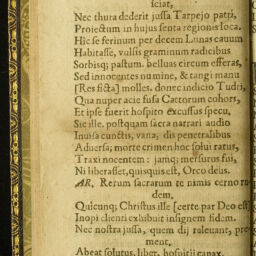 sciat,
Nec thura dederit jussa Tarpejo patri,
Projectum in hujus senta regionis loca.
Hîc se ferinum per decem Lunas cavum
Habitasse, vulsis graminum radicibus
Sorbisq; pastum. belluas circum efferas,
Sed innocentes numine, & tangi manu
[Res ficta] molles. donec indicio Tudri,
Qua nuper acie fusa Cattorum cohors,
Et ipse fuerit hospito excussus specu,
Sic ille. postquam sacra narrari audio
Invisa cunctis, vana, dis penetralibus
Adversa; morte crimen hoc solui ratus,
Traxi nocentem: jamq; mersurus fui,
Ni liberasset, quisquis est, Orco deus.
AR. Rerum sacrarum te nimis cerno ru-
dem,
Quicunq; Christus ille [certe par Deo est]
Inopi clienti exhibuit insignem fidem.
Nec nostra jussa, quem dij valeuant, pre-
ment.
Abeat solutus, liber, hospitij